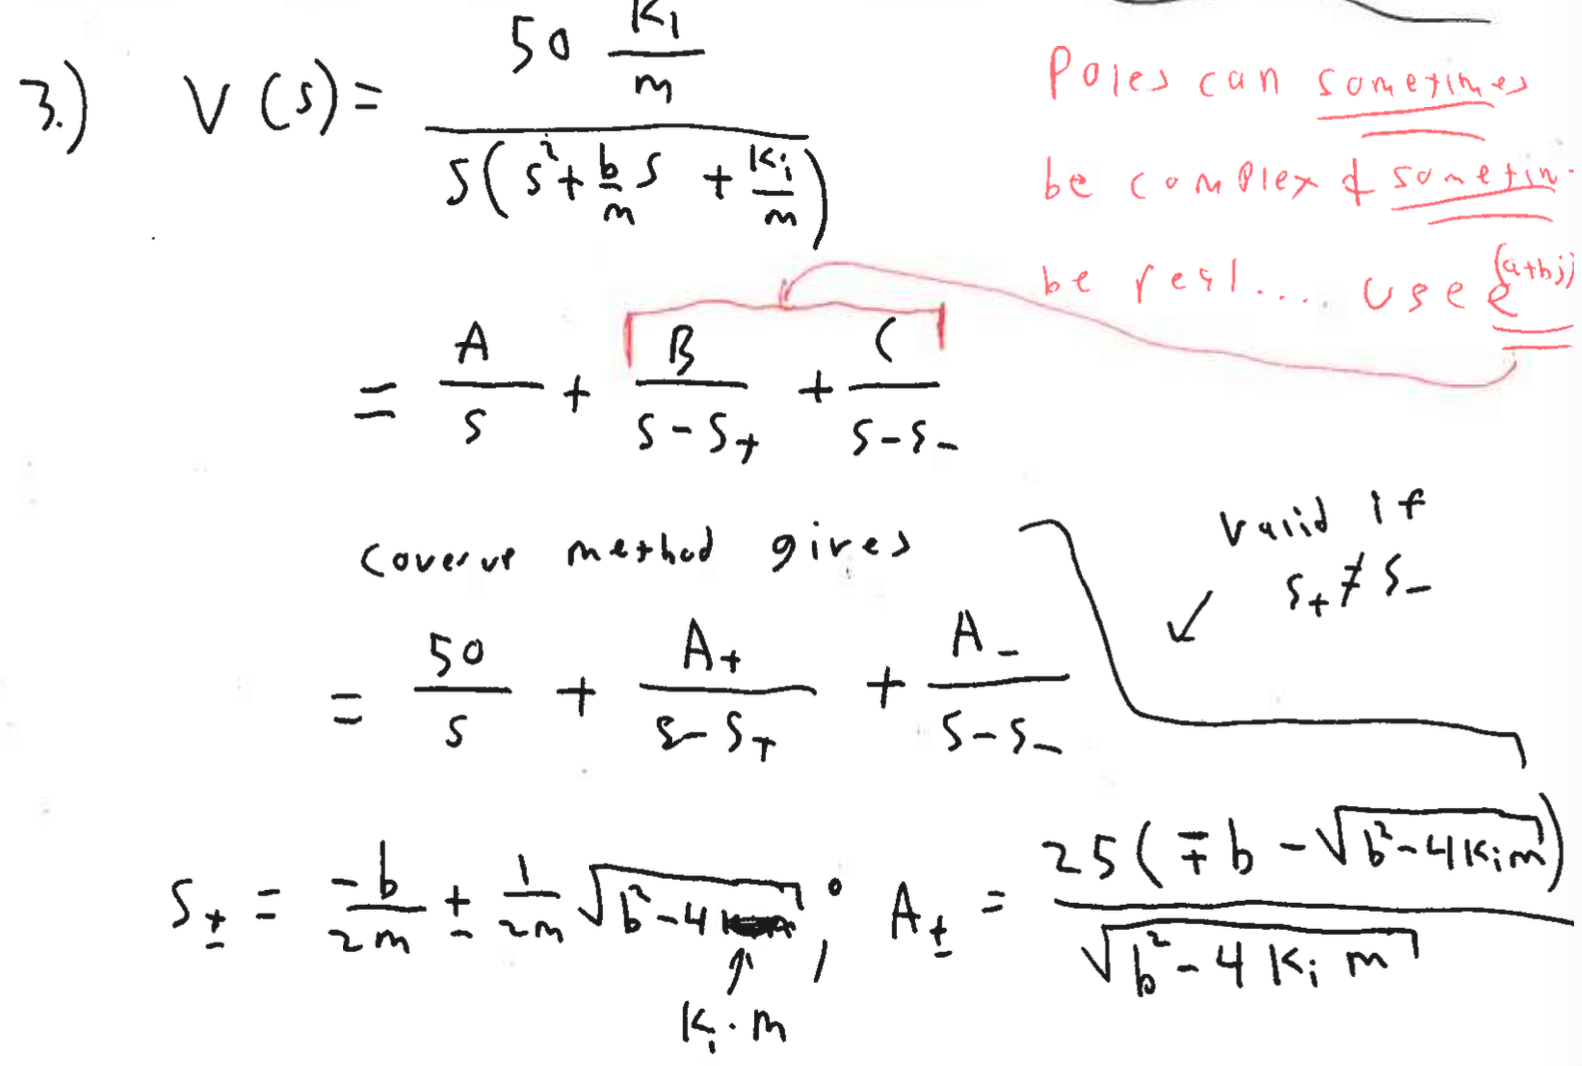 3.) V(s) = 50 Ki/m / s(s² + b/m s + Ki/m)
Poles can sometimes
be complex & sometim
be real.... use e^(a+bj)
= A/s + B/(s-s₊) + C/(s-s₋)
coverup method gives
valid if
s₊ ≠ s₋
= 50/s + A₊/(s-s₊) + A₋/(s-s₋)
s± = -b/2m ± 1/2m √(b²-4 ; A± = 25(∓b - √(b²-4Kim)) / √(b²-4Kim)
Ki·m